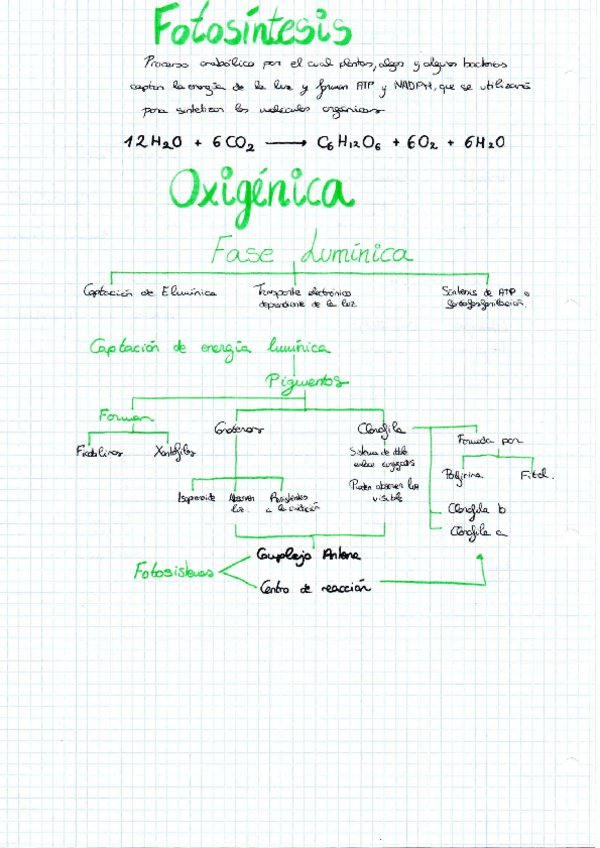 Fotosíntesis
Proceso anabólico por el cual plantas, algas y algunas bacterias
captan la energía de la luz y forman ATP y NADPH, que se utilizará
para sintetizar las moléculas orgánicas
12H2O + 6CO2 → C6H12O6 + 6O2 + 6H2O
Oxigénica
Fase Lumínica
Captación de E lumínica
Transporte electrónico
dependiente de la luz
Síntesis de ATP o
fotofosforilación.
Captación de energía lumínica
Pigmentos
Forman
Ficobilinas
Xantofilas
Carotenos
Isoprenoide
Absorven
luz.
Resistentes
a la oxidación
Clorofila
Sistema de doble
enlace conjugados
Pueden absorver luz
visible
Formada por
Porfirina
Fitol.
Clorofila b
Clorofila a
Complejo Antena
Fotosistemas
Centro de reacción